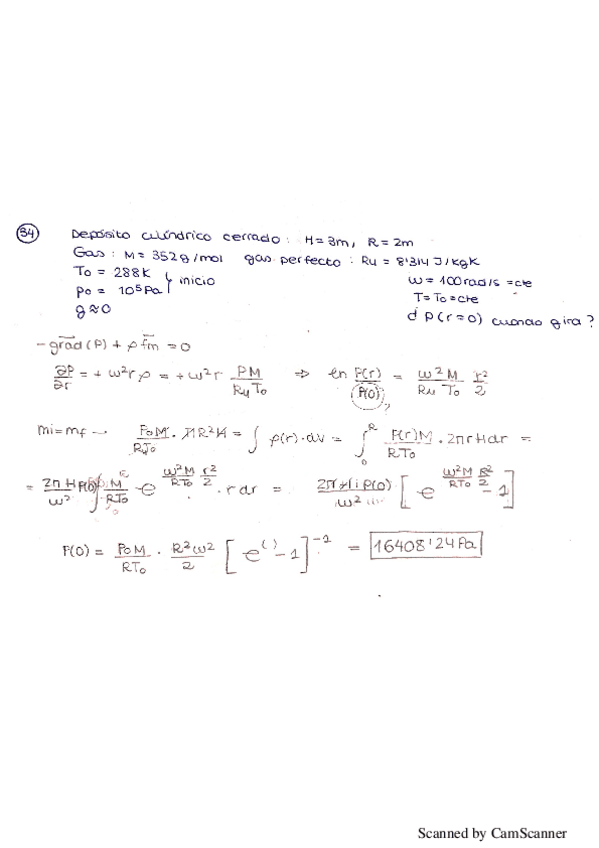 34 Depósito cilíndrico cerrado: H=3m, R=2m
Gas: M=352g/mol gas perfecto: Ru=8'314 J/kgK
To = 288K
po = 10⁵Pa } inicio
g≈0
ω=100rad/s=cte
T=To=cte
¿ P(r=0) cuando gira?
- grad(P) + ρ fm = 0
∂P/∂r = + ω²r ρ = + ω²r PM/RuTo ⇒ ln P(r)/P(0) = ω²M/RuTo r²/2
mi=mf → PoM/RTo · πR²H = ∫ρ(r)·dV = ∫₀ᴿ P(r)M/RTo · 2πrHdr =
= 2πHP(0)/ω² ∫ M/RTo · e^(ω²M/RTo r²/2) · r dr = [e^(ω²M/RTo R²/2) - 1]
P(0) = PoM/RTo · R²ω²/2 [e^( ) - 1]⁻¹ = 16408'24Pa
Scanned by CamScanner